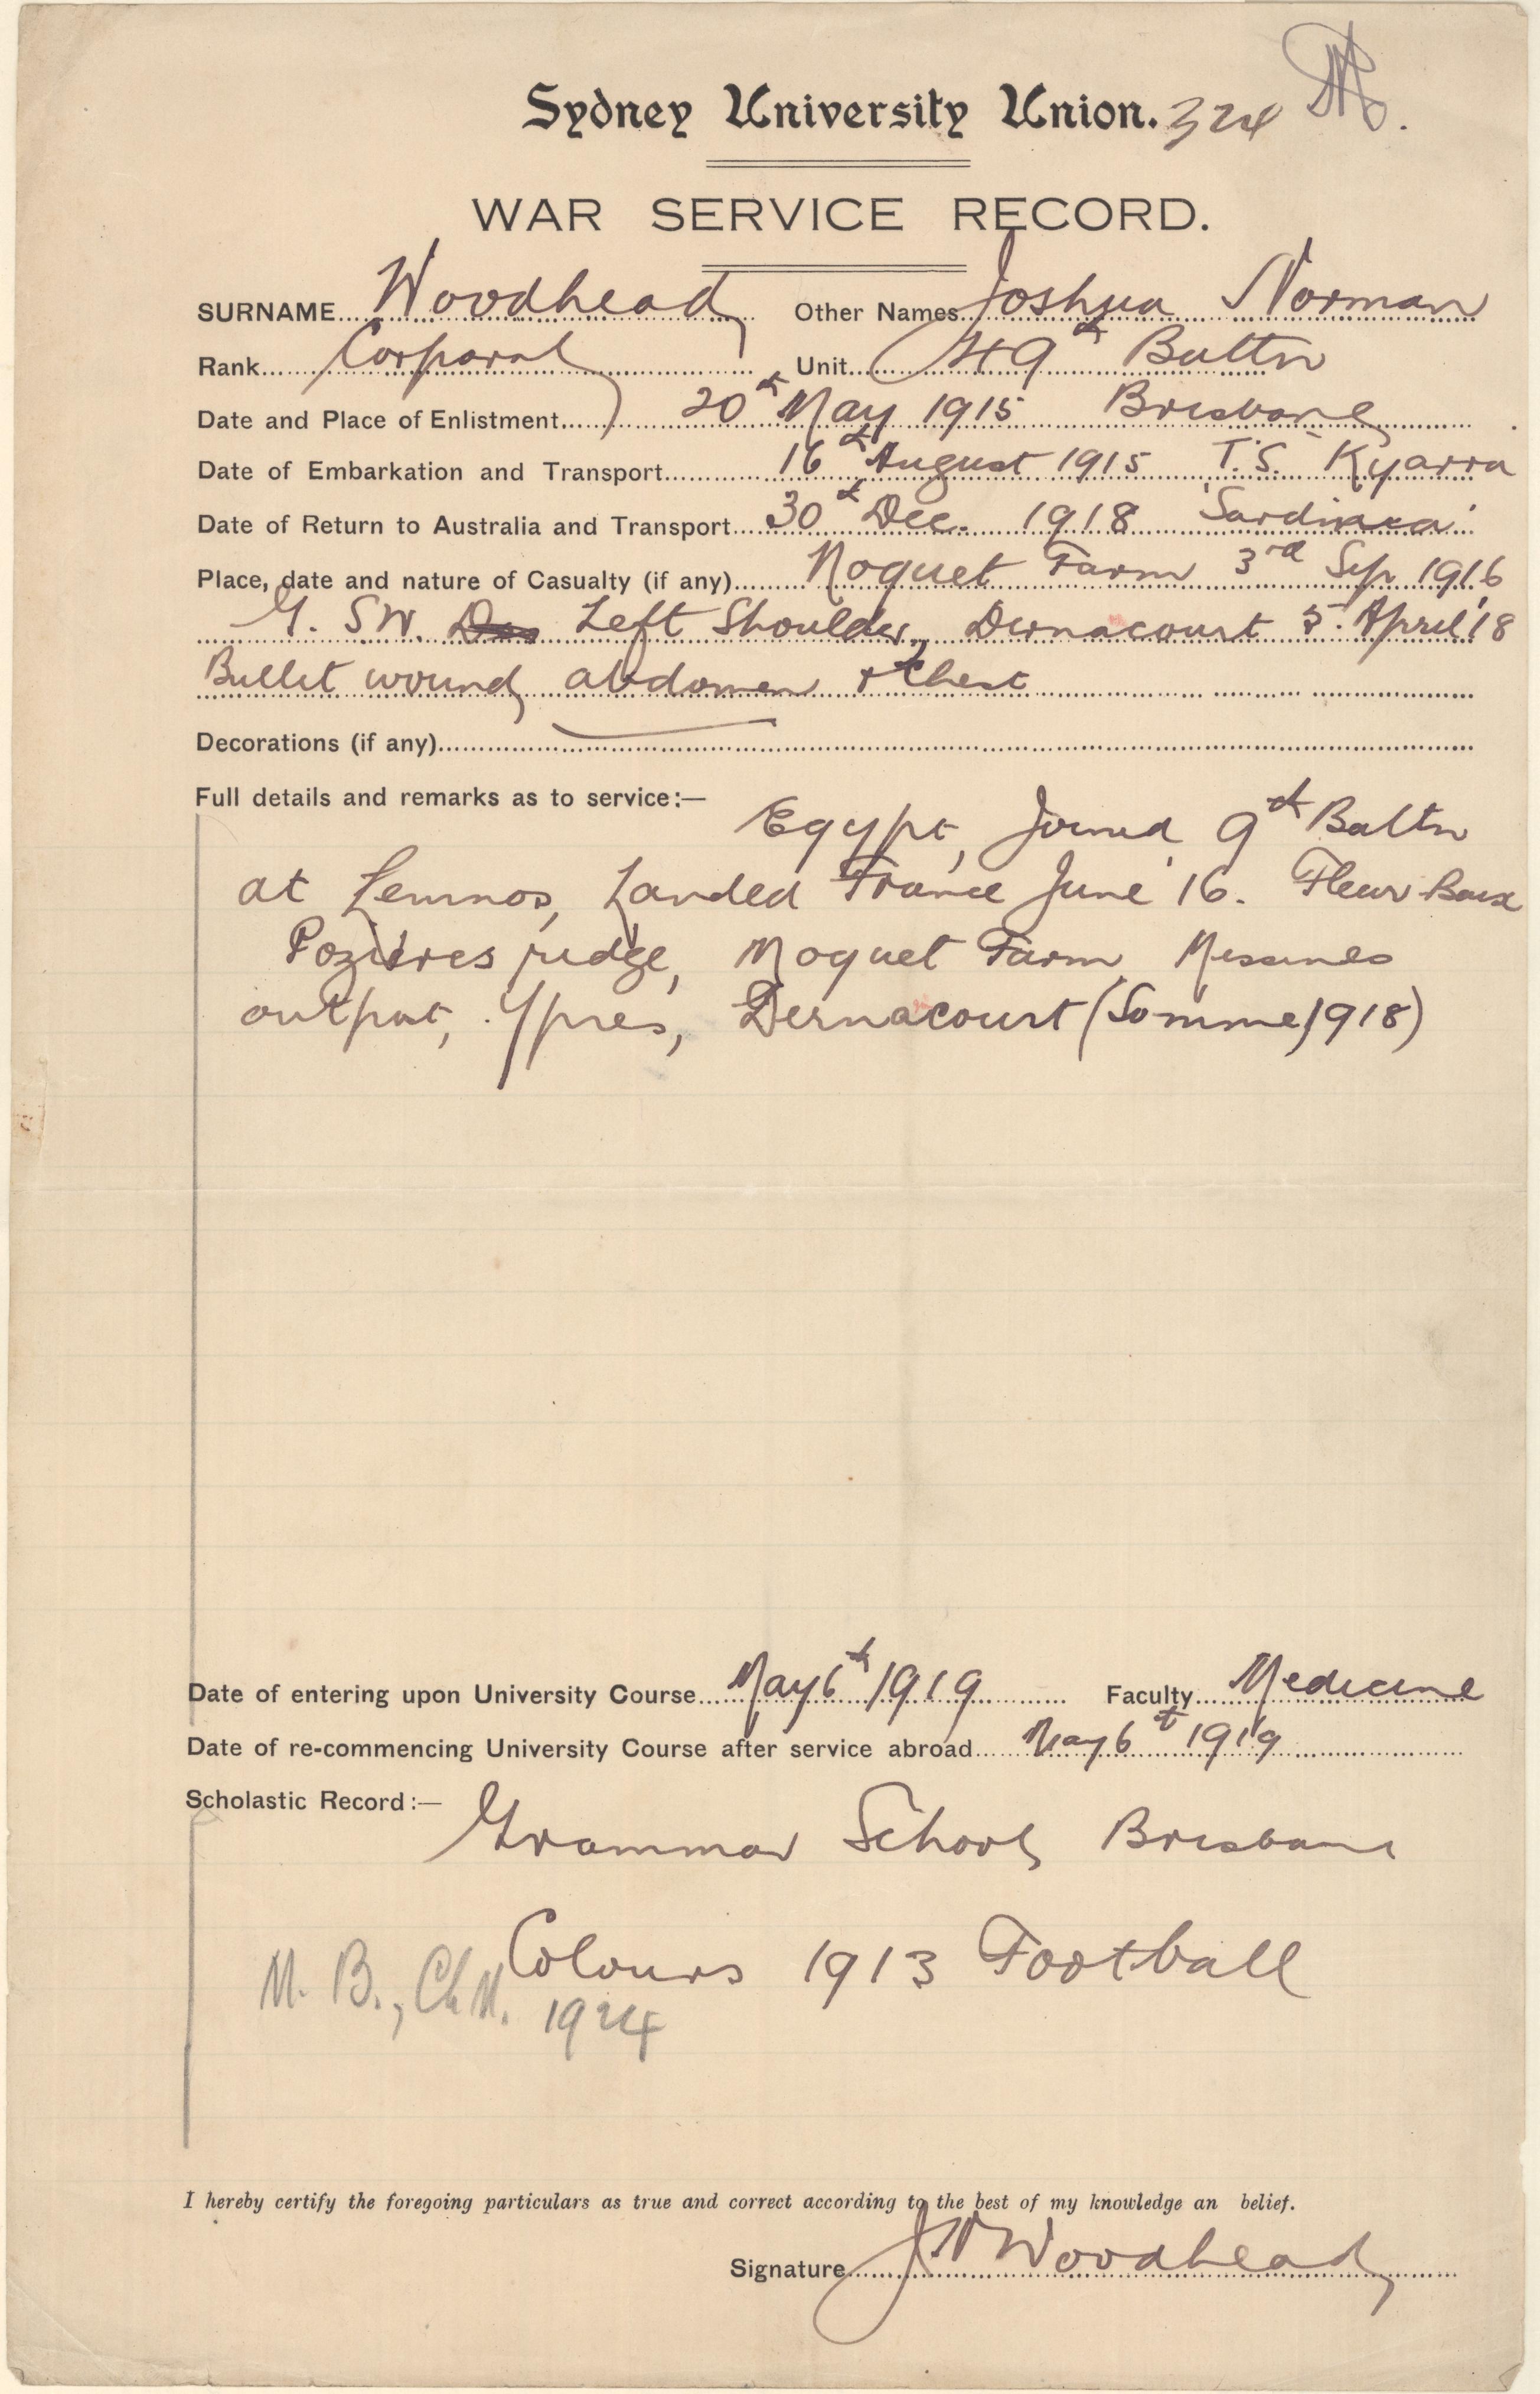 Sydney University Union. 324
WAR SERVICE RECORD.
SURNAME Woodhead Other Names Joshua Norman
Rank Corporal Unit 49th Battn
Date and Place of Enlistment 20th May 1915 Brisbane
Date of Embarkation and Transport 16th August 1915 T.S. Kyarra
Date of Return to Australia and Transport 30th Dec. 1918 'Sardinia'
Place, date and nature of Casualty (if any) Moquet Farm 3rd Sep 1916
G. S W. Left Shoulder, Dernacourt 5. April '18
Bullet wound abdomen & Chest
Decorations (if any)
Full details and remarks as to service:—
Egypt, Joined 9th Battn
at Lemnos, Landed France June '16. Fleur Baux
Pozieres ridge, Moquet Farm, Messines
outpost, Ypres, Dernacourt (Somme, 1918)
Date of entering upon University Course May 6th 1919 Faculty Medicine
Date of re-commencing University Course after service abroad May 6th 1919
Scholastic Record:—
Grammar School Brisbane
Colours 1913 Football
M. B., Ch. M. 1924
I hereby certify the foregoing particulars as true and correct according to the best of my knowledge an belief.
Signature J N Woodhead